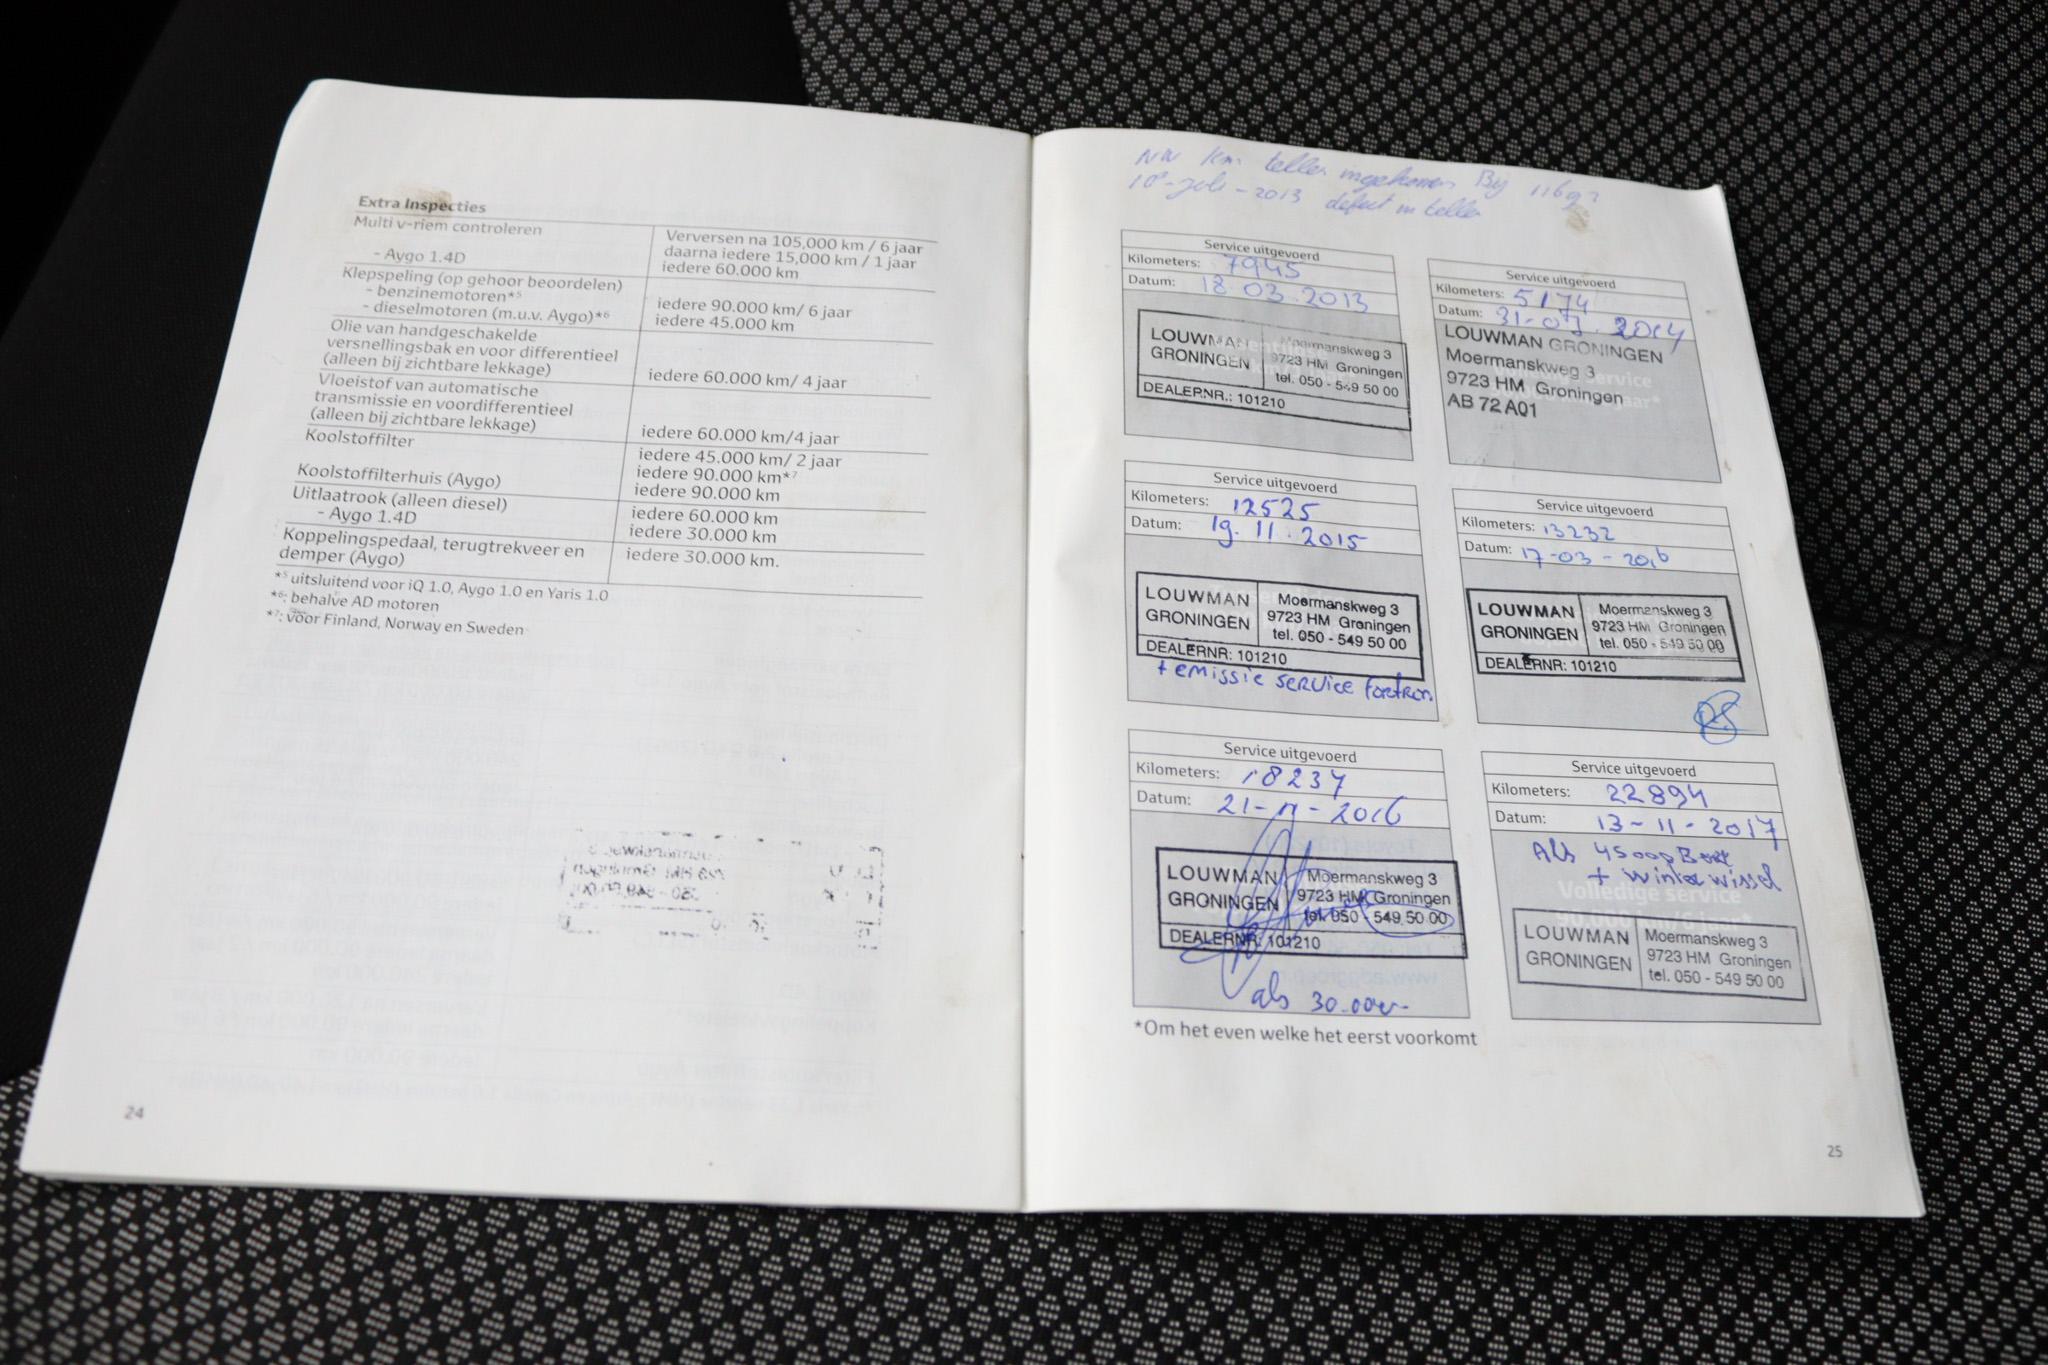 Extra Inspecties
Multi v-riem controleren
Verversen na 105,000 km / 6 jaar
daarna iedere 15,000 km / 1 jaar
- Aygo 1.4D
iedere 60.000 km
Klepspeling (op gehoor beoordelen)
- benzinemotoren*5
iedere 90.000 km/ 6 jaar
- dieselmotoren (m.u.v. Aygo)*6
iedere 45.000 km
Olie van handgeschakelde
versnellingsbak en voor differentieel
(alleen bij zichtbare lekkage)
iedere 60.000 km/ 4 jaar
Vloeistof van automatische
transmissie en voordifferentieel
(alleen bij zichtbare lekkage)
iedere 60.000 km/4 jaar
Koolstoffilter
iedere 45.000 km/ 2 jaar
iedere 90.000 km*7
Koolstoffilterhuis (Aygo)
iedere 90.000 km
Uitlaatrook (alleen diesel)
iedere 60.000 km
- Aygo 1.4D
iedere 30.000 km
Koppelingspedaal, terugtrekveer en
demper (Aygo)
iedere 30.000 km.
*5 uitsluitend voor iQ 1.0, Aygo 1.0 en Yaris 1.0
*6: behalve AD motoren
*7: voor Finland, Norway en Sweden
24
km teller ingekomen Bij
2013 defect in teller
Service uitgevoerd
Kilometers: 7945
Datum: 18.03.2013
LOUWMAN GRONINGEN
Moermanskweg 3
9723 HM Groningen
tel. 050 - 549 50 00
DEALERNR.: 101210
Service uitgevoerd
Kilometers: 5174
Datum: 31-07.2014
LOUWMAN GRONINGEN
Moermanskweg 3
9723 HM Groningen
AB 72 A01
Service uitgevoerd
Kilometers: 12525
Datum: 19.11.2015
LOUWMAN GRONINGEN
Moermanskweg 3
9723 HM Groningen
tel. 050 - 549 50 00
DEALERNR: 101210
+ emissie service fortron
Service uitgevoerd
Kilometers: 13232
Datum: 17-03-2016
LOUWMAN GRONINGEN
Moermanskweg 3
9723 HM Groningen
tel. 050 - 549 50 00
DEALERNR: 101210
Service uitgevoerd
Kilometers: 18237
Datum: 21-11-2016
LOUWMAN GRONINGEN
Moermanskweg 3
9723 HM Groningen
tel. 050 - 549 50 00
DEALERNR: 101210
als 30.000
Service uitgevoerd
Kilometers: 22894
Datum: 13-11-2017
Als
+ winterwissel
Volledige service
90.000 km/6 jaar*
LOUWMAN GRONINGEN
Moermanskweg 3
9723 HM Groningen
tel. 050 - 549 50 00
*Om het even welke het eerst voorkomt
25